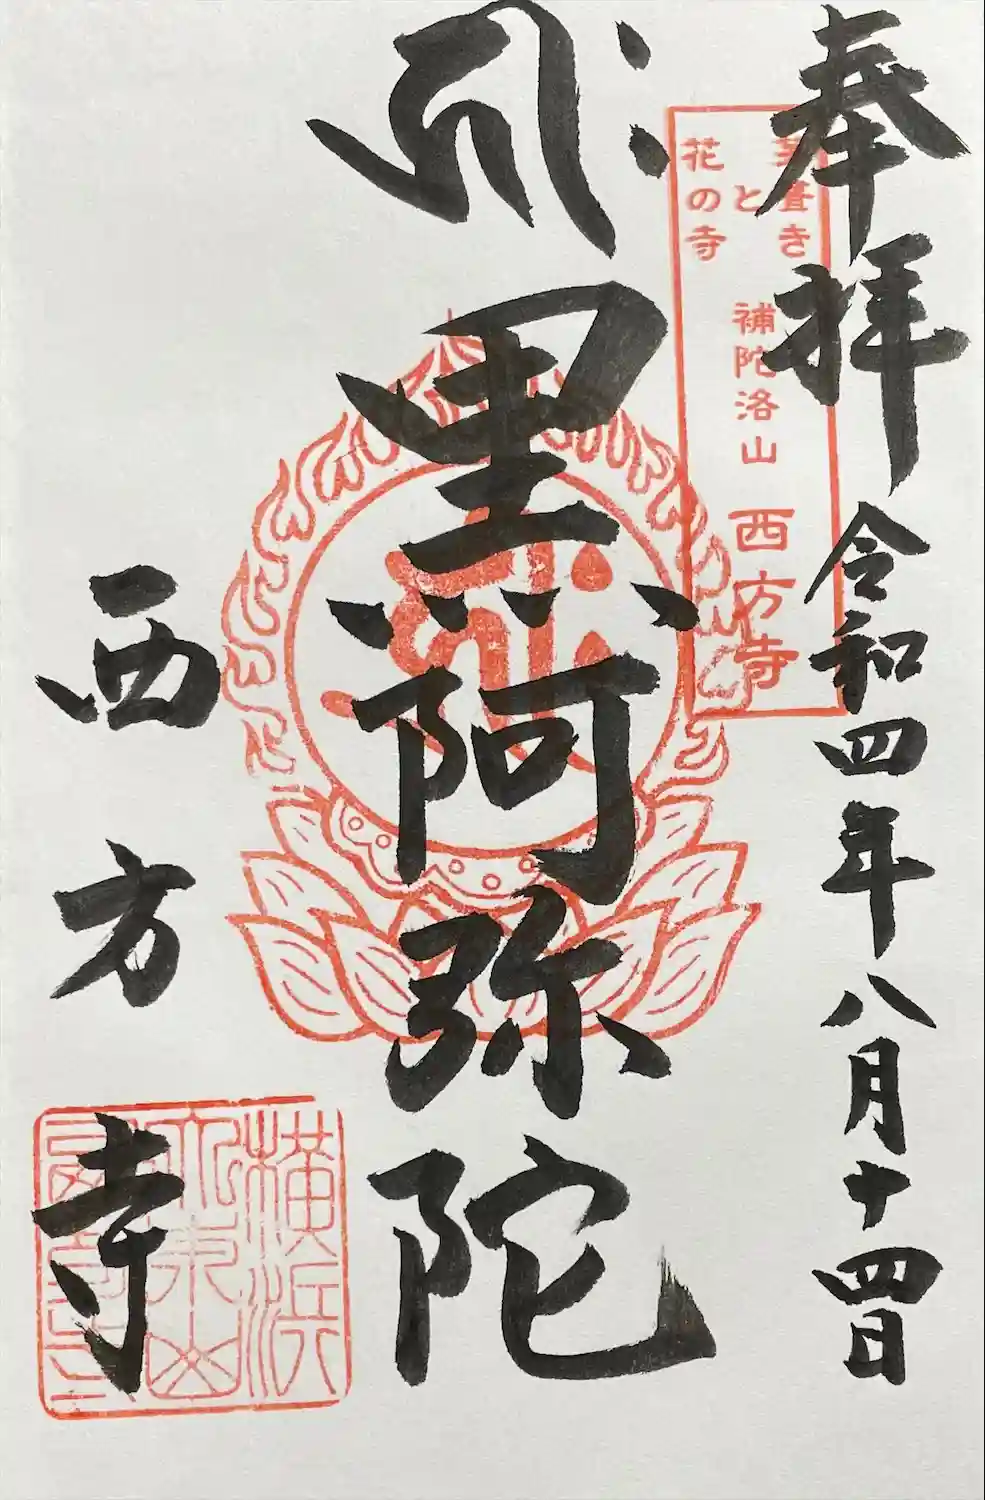 奉拝 令和四年八月十四日
茅葺き
と
花の寺
補陀洛山 西方寺
黒阿弥陀
西方寺
横浜